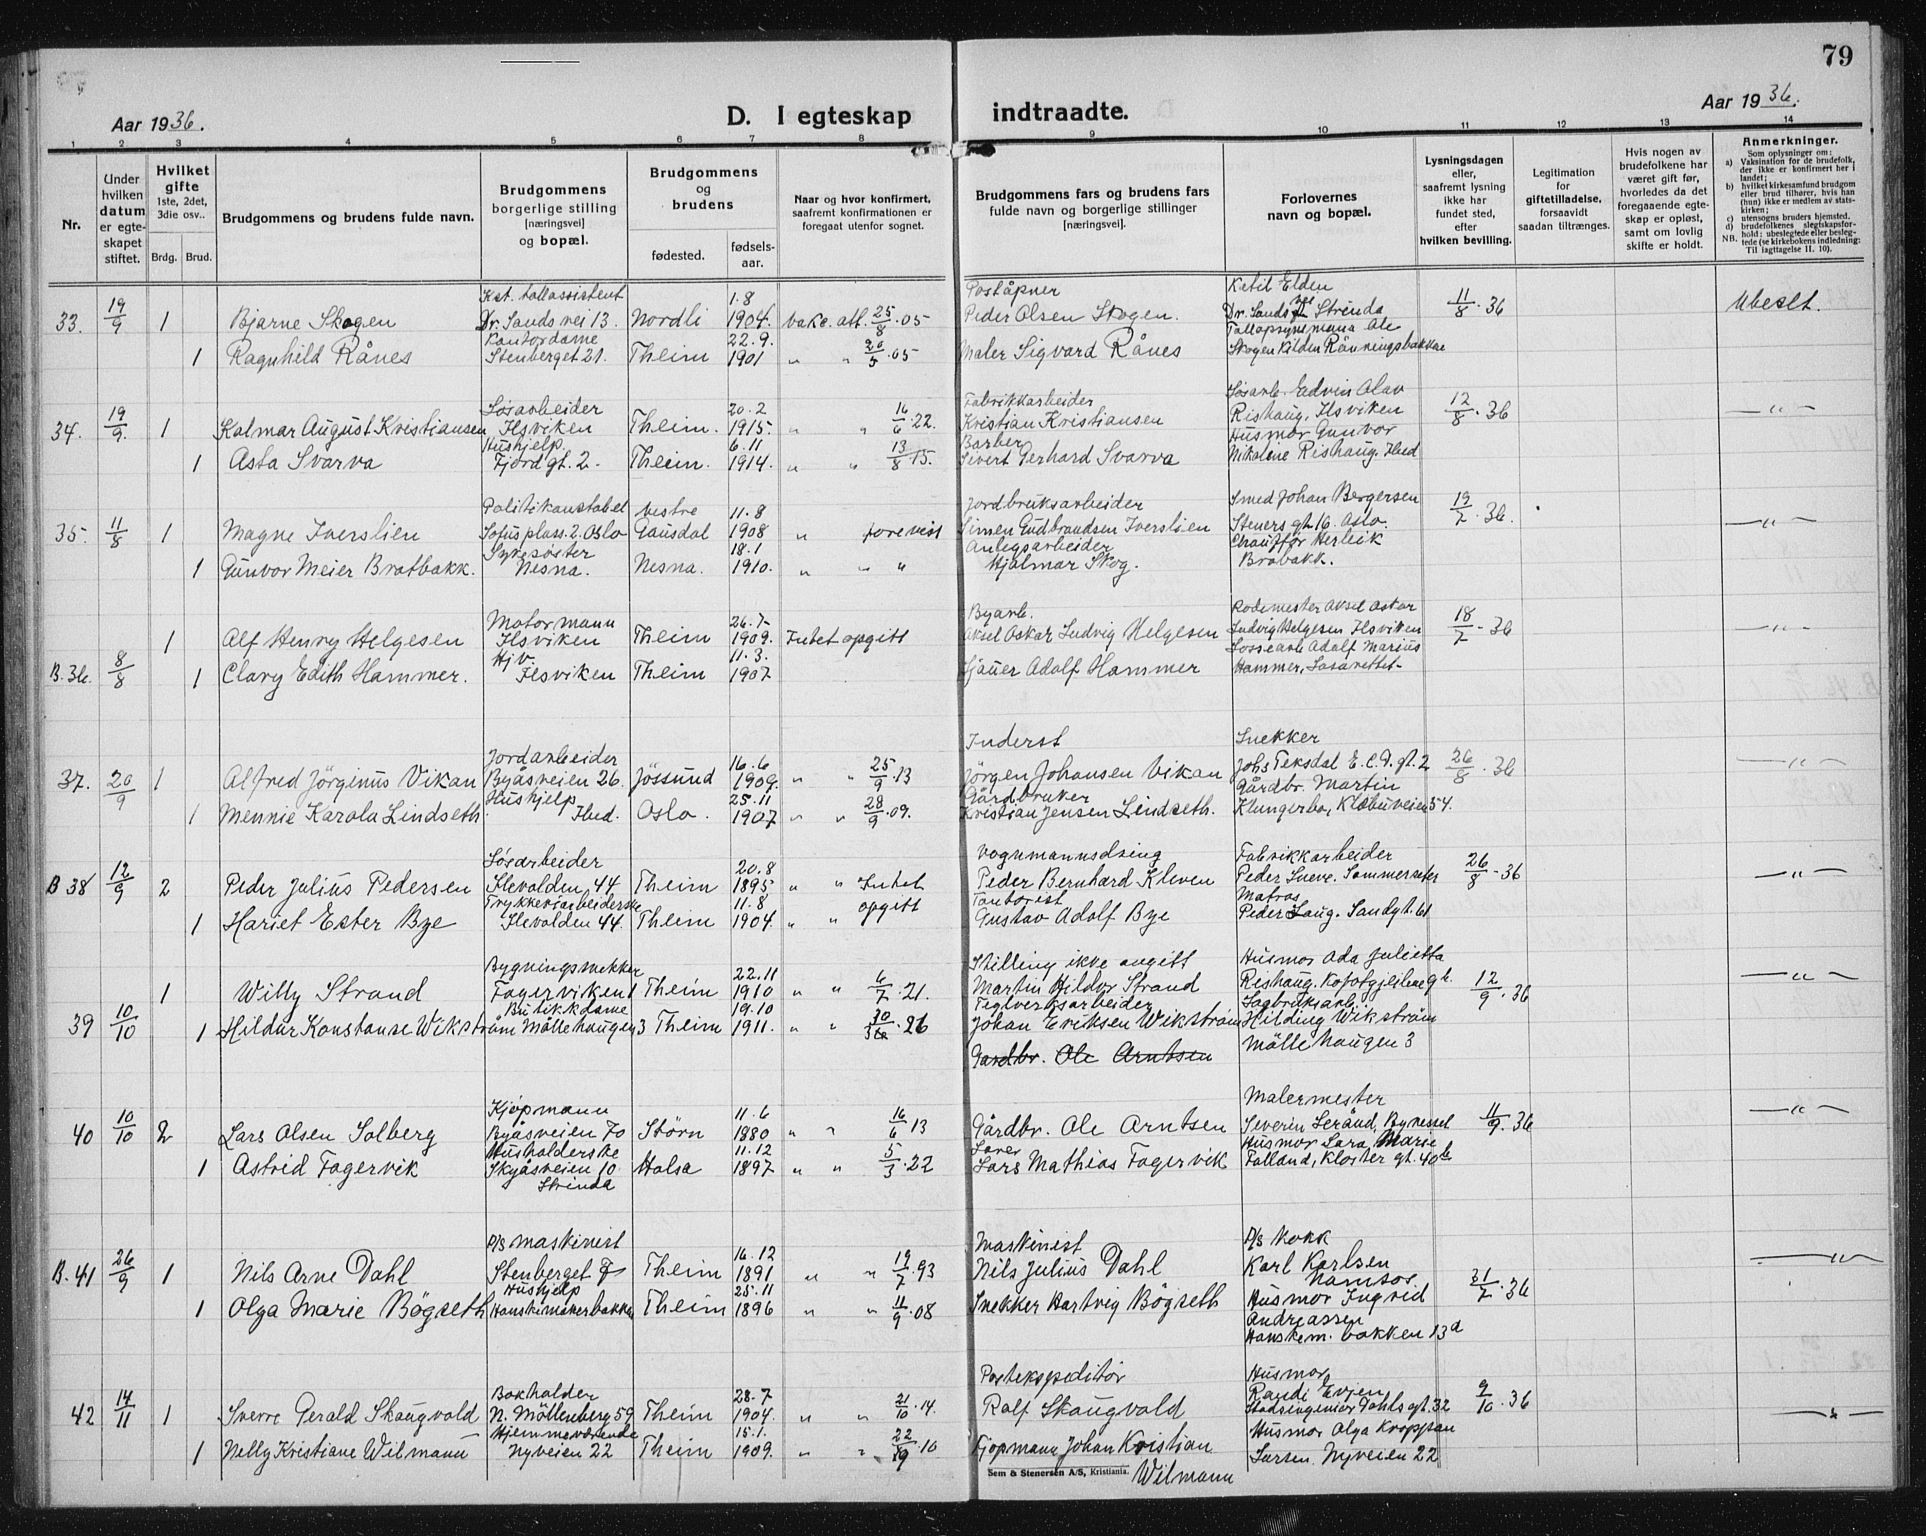 79
Aar 1936.
D. I egteskap indtraadte.
Aar 1936.
1 2 3 4 5 6 7 8 9 10 11 12 13 14
Nr.
Under hvilken datum er egteskapet stiftet.
Hvilket gifte 1ste, 2det, 3die osv..
Brdg. Brud.
Brudgommens og brudens fulde navn.
Brudgommens borgerlige stilling [næringsvei] og bopæl.
Brudgommens og brudens
fødested. fødselsaar.
Naar og hvor konfirmert, saafremt konfirmationen er foregaat utenfor sognet.
Brudgommens fars og brudens fars fulde navn og borgerlige stillinger [næringsvei].
Forlovernes navn og bopæl.
Lysningsdagen eller, saafremt lysning ikke har fundet sted, efter hvilken bevilling.
Legitimation for giftetilladelse, forsaavidt saadan tiltrænges.
Hvis nogen av brudefolkene har været gift før, hvorledes da det foregaaende egteskap er opløst, samt om lovlig skifte er holdt.
Anmerkninger.
Som oplysninger om:
a) Vaksination for de brudefolk, der ikke er konfirmert her i landet;
b) hvilket kirkesamfund brudgom eller brud tilhører, hvis han (hun) ikke er medlem av statskirken;
c) utensogns bruders hjemsted.
d) brudefolkenes slegtskapsforhold: ubeslegtede eller beslegtede (se kirkebokens indledning:
NB. Til iagttagelse II. 10).
33. 19/9 1 Bjarne Skogen Kst. tollassistent Dr. Sands vei 13. Nordli 1.8 1904. vakc. att. 25/8.05 Poståpner Peder Olsen Skogen. Ketil Elden Dr. Sands vei Strinda 11/8.36 Ubeslt.
1 Ragnhild Rånes Kontordame Stenberget. 21. Theim 22.9. 1901 " " 20/5.05 Maler Sigvard Rånes Tollopsynsmann Ole Skogen Kilden Rönningsbakkne
34. 19/9. 1 Kalmar August Kristiansen Løsarbeider Ilsviken Theim. 20.2 1915. " " 16/6.22. Fabrikkarbeider Kristian Kristiansen Løsarb. Edvin Olav Rishaug, Ilsviken 12/8.36 —"—
1 Asta Svarva Hushjelp Fjordgt. 2. Theim. 6.11 1914. " " 13/8.15. Barber Sivert Gerhard Svarva Husmor Gunvor Nikoline Rishaug. Ibid
35. 11/8 1 Magne Iverslien Politikonstabel Sofus plass. 2. Oslo Vestre Gausdal 11.8 1908 " forevist Jordbruksarbeider Simen Gudbrandsen Iverslien Smed Johan Bergersen Steners gt. 16. Oslo. 19/7.36. —"—
1 Gunvor Meier Bratbakk. Sykesøster Nesna. Nesna. 18.1 1910. " " " Anlegsarbeider Hjalmar Skog. Chauffør Herleik Brabakk.
B.36. 8/8 1 Alf Henry Helgesen Motormann Ilsviken Theim 26.7- 1909. Intet opgitt Byarb. Aksel Oskar Ludvig Helgesen Rodemester Aksel Oskar Ludvig Helgesen Ilsviken 18/7-36 —"—
1 Clary Edith Hammer. Hjv. Ilsviken Theim 11.3. 1907 Sjauer Adolf Hammer Lossearb Adolf Marius Hammer, Lasarettet-
37. 20/9 1 Alfred Jörginus Vikan Jordarbeider Byåsveien 26. Jössund 16.6 1909. " " 25/9.13 Inderst Jörgen Johansen Vikan Snekker Johs Teksdal E.C.D.gt. 2 26/8.36 —"—
1 Mennie Karola Lindseth Hushjelp Ibid. Oslo. 25.11 1907 " " 28/9.09. Gårdbruker Kristian Jensen Lindseth. Gårdbr. Martin Klungerbo, Klæbuveien 54.
B 38 12/9 2 Peder Julius Pedersen Løsarbeider Ilevolden 44 Theim 20.8 1895 " " Intet opgitt Vognmannsdreng Peder Bernhard Kleven Fabrikkarbeider Peder Sneve. Sommerseter 26/8-36 —"—
1 Hariet Ester Bye Trykkeriarbeiderske Ilevolden 44. Theim 11.8 1904. " " Kontorist Gustav Adolf Bye Matros Peder Haug. Sandgt. 61
39 10/10 1 Willy Strand Bygningssnekker Fagerviken 1 Theim 22.11 1910 " " 6/7.21. Stilling ikke angitt Martin Hildor Strand Husmor Ada Julietta Rishaug, 12/9.36 —"—
1 Hildur Konstanse Wikström Butikkdame Möllehaugen 3 Theim 19.10 1911. " " 30/5.26 Teglverksarbeider Johan Eriksen Wikström Sagbruksarb. Hilding Wikström Möllehaugen 3
Gardbr. Ole Arntsen
40 10/10 2 Lars Olsen Solberg Kjøpmann Byåsveien 70 Stören 11.6 1880 " " 16/6 13 Gårdbr. Ole Arntsen Malermester Severin Leränd, Byneset 11/9.36 —"—
1 Astrid Fagervik Husholderske Skyåsveien 10 Strinda Halsa 11.12 1897 " " 5/3.22 Lærer Lars Mathias Fagervik Husmor Lara Marie Falland, Kloster gt. 40b
B.41 26/9 1 Nils Arne Dahl D/S maskinist Stenberget 7 Theim 16.12 1891 " " 19/7.93 Maskinist Nils Julius Dahl D/S Kokk Karl Karlsen Namsos 31/7.36 —"—
1 Olga Marie Bögseth Hushjelp Hanskemakerbakken Theim 25.11 1896 " " 11/9.08 Snekker Hartvig Bögseth Husmor Ingrid Andreassen Hanskem. bakken 13a
42 14/11 1 Sverre Gerald Skaugvold Bokholder N. Möllenberg 59 Theim 28.7 1904. " " 21/10.14. Postekspeditör Rolf Skaugvold Husmor Randi Evjen Stadsingeniør Dahls gt. 32 9/10.36 —"—
1 Nelly Kristiane Wilmann Hjemmeværende Nyveien 22 Theim 15.1. 1909. " " 22/9.10 Kjøpmann Johan Kristian Wilmann Husmor Olga Kroppan Larsen. Nyveien 22
Sem & Stenersen A/S, Kristiania.